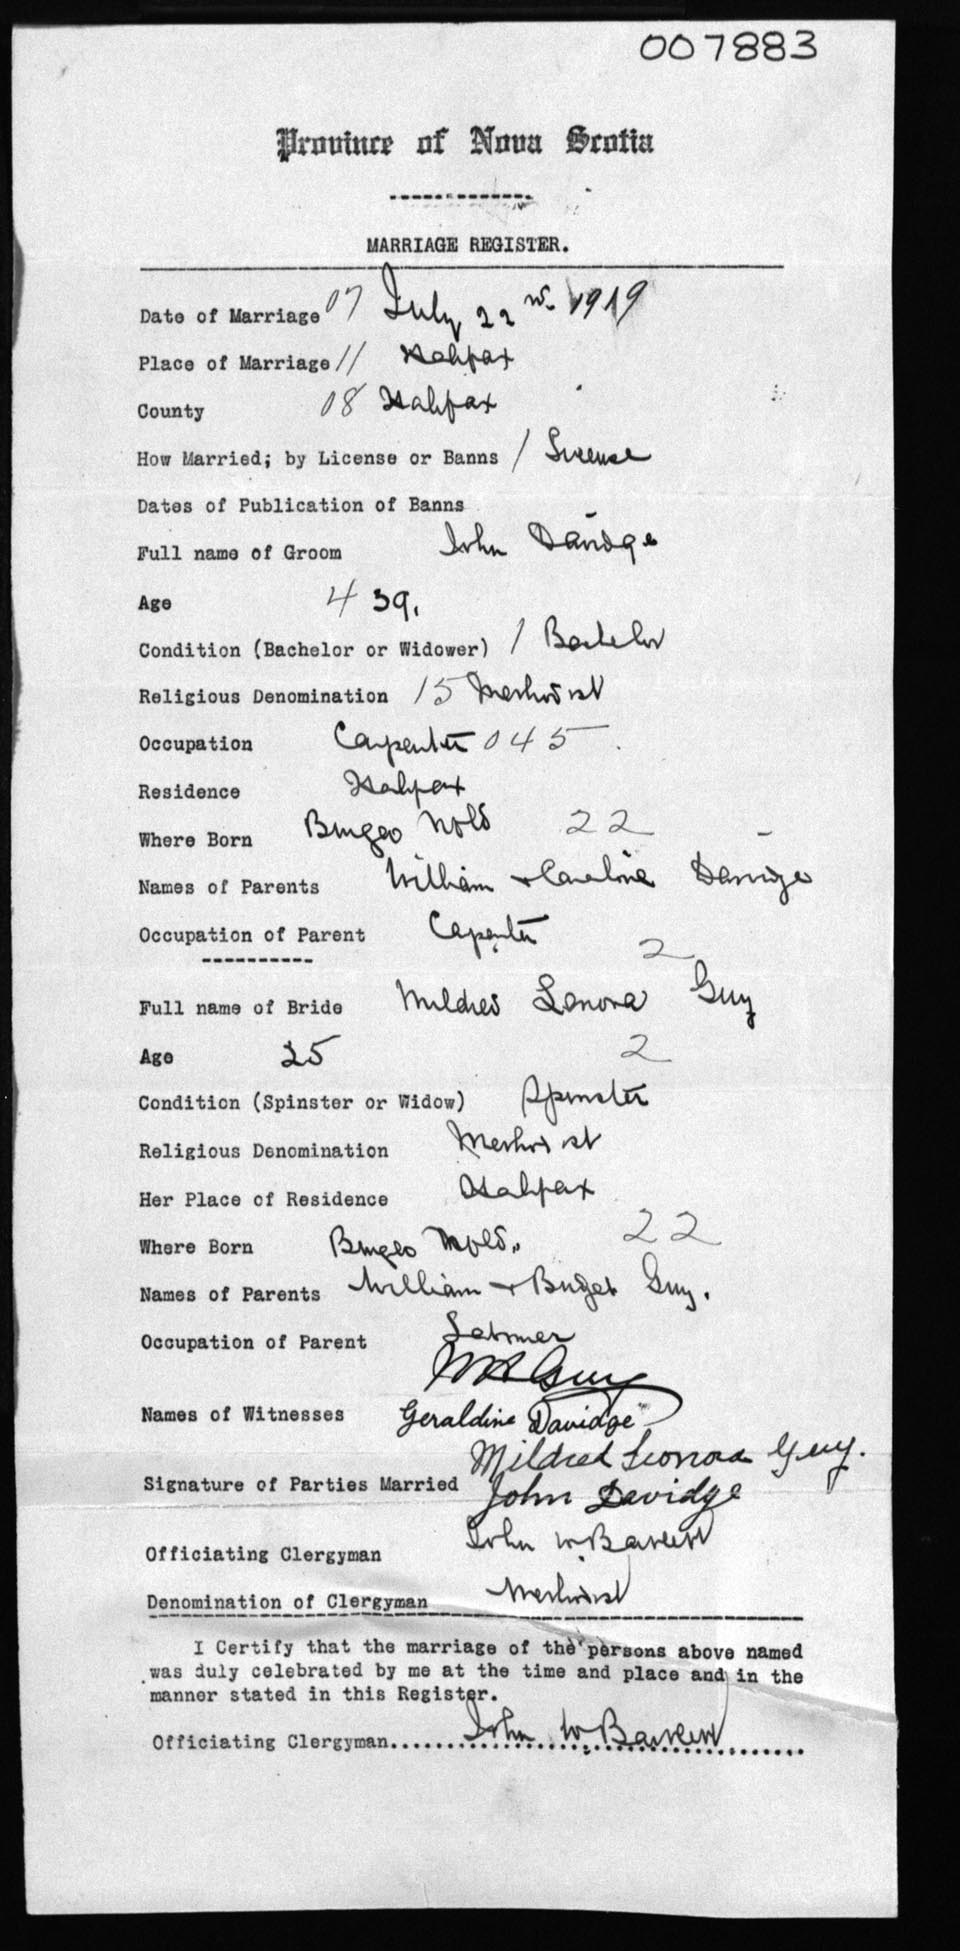 007883
Province of Nova Scotia
MARRIAGE REGISTER.
Date of Marriage 07 July 22nd 1919
Place of Marriage 11 Halifax
County 08 Halifax
How Married; by License or Banns 1 License
Dates of Publication of Banns
Full name of Groom John Davidge
Age 4 39.
Condition (Bachelor or Widower) 1 Bachelor
Religious Denomination 15 Methodist
Occupation Carpenter 045
Residence Halifax
Where Born Burgeo Nfld 22
Names of Parents William + Caroline Davidge
Occupation of Parent Capenter
2
Full name of Bride Mildred Lenora Guy
Age 25 2
Condition (Spinster or Widow) Spinster
Religious Denomination Methodist
Her Place of Residence Halifax
Where Born Burgeo Nfld. 22
Names of Parents William + Bridget Guy.
Occupation of Parent
Guy
Names of Witnesses Geraldine Davidge
Mildred Leonora Guy.
Signature of Parties Married John Davidge
Officiating Clergyman John W. Bartlett
Denomination of Clergyman Methodist
I Certify that the marriage of the persons above named
was duly celebrated by me at the time and place and in the
manner stated in this Register.
Officiating Clergyman.... John W. Bartlett